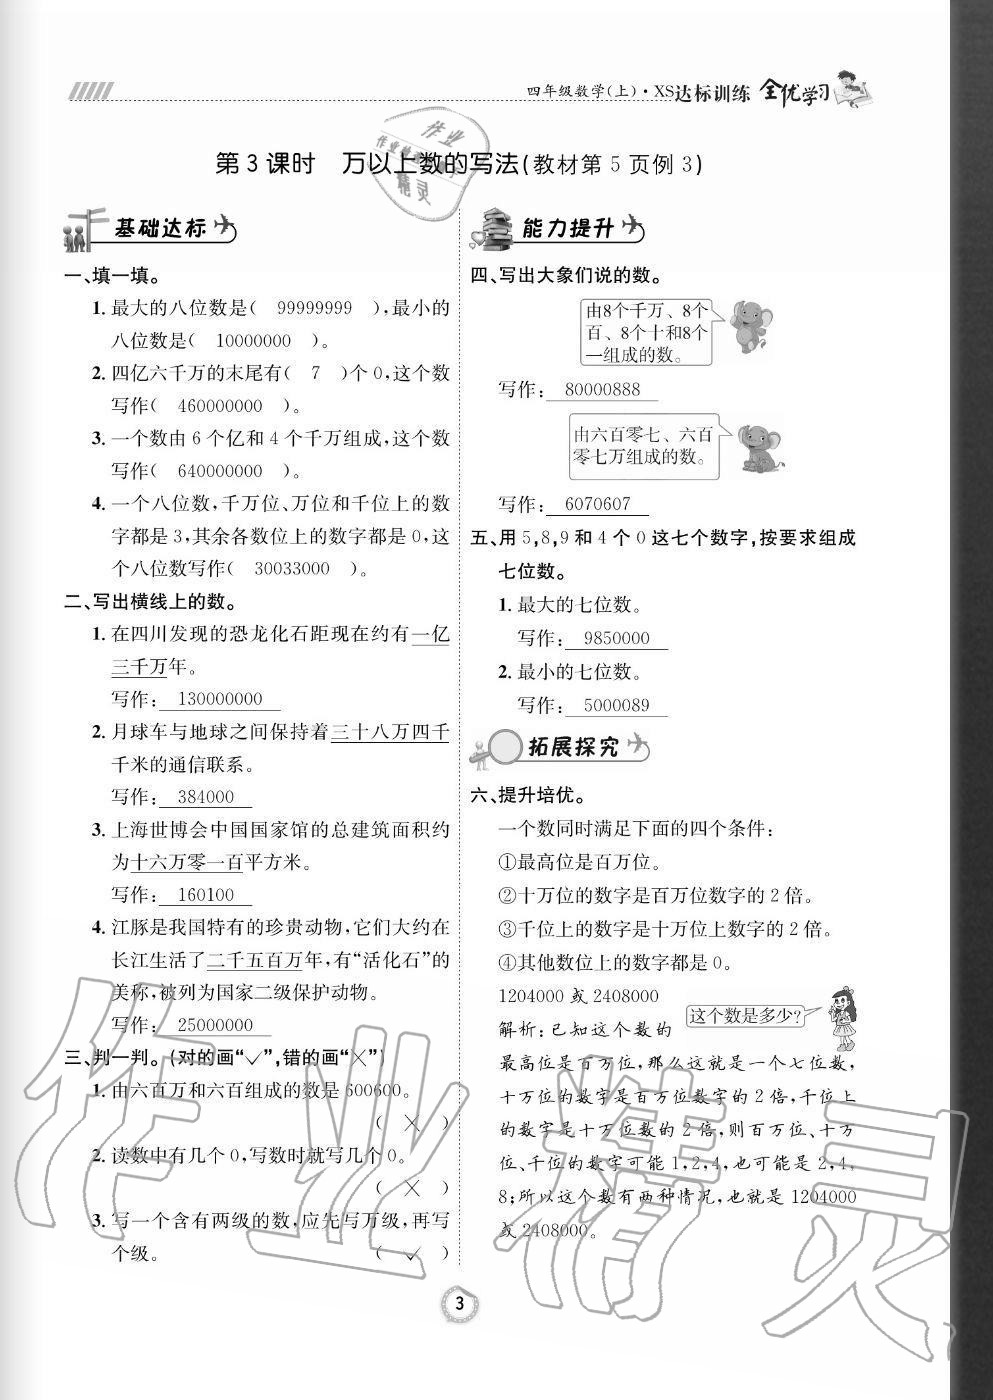 四年级数学(上)·XS达标训练 全优学习
第3课时 万以上数的写法(教材第5页例3)
基础达标
一、填一填。
1. 最大的八位数是( 99999999 ),最小的
八位数是( 10000000 )。
2. 四亿六千万的末尾有( 7 )个0,这个数
写作( 460000000 )。
3. 一个数由6个亿和4个千万组成,这个数
写作( 640000000 )。
4. 一个八位数,千万位、万位和千位上的数
字都是3,其余各数位上的数字都是0,这
个八位数写作( 30033000 )。
二、写出横线上的数。
1. 在四川发现的恐龙化石距现在约有一亿
三千万年。
写作: 130000000
2. 月球车与地球之间保持着三十八万四千
千米的通信联系。
写作: 384000
3. 上海世博会中国国家馆的总建筑面积约
为十六万零一百平方米。
写作: 160100
4. 江豚是我国特有的珍贵动物,它们大约在
长江生活了二千五百万年,有“活化石”的
美称,被列为国家二级保护动物。
写作: 25000000
三、判一判。(对的画“✓”,错的画“×”)
1. 由六百万和六百组成的数是600600。
( × )
2. 读数中有几个0,写数时就写几个0。
( × )
3. 写一个含有两级的数,应先写万级,再写
个级。 ( ✓ )
能力提升
四、写出大象们说的数。
由8个千万、8个
百、8个十和8个
一组成的数。
写作: 80000888
由六百零七、六百
零七万组成的数。
写作: 6070607
五、用5,8,9和4个0这七个数字,按要求组成
七位数。
1. 最大的七位数。
写作: 9850000
2. 最小的七位数。
写作: 5000089
拓展探究
六、提升培优。
一个数同时满足下面的四个条件:
①最高位是百万位。
②十万位的数字是百万位数字的2倍。
③千位上的数字是十万位上数字的2倍。
④其他数位上的数字都是0。
1204000或2408000
这个数是多少?
解析:已知这个数的
最高位是百万位,那么这就是一个七位数,
十万位的数字是百万位数字的2倍,千位上
的数字是十万位数的2倍,则百万位、十万
位、千位的数字可能1,2,4,也可能是2,4,
8;所以这个数有两种情况,也就是1204000
或2408000。
3
作业精灵